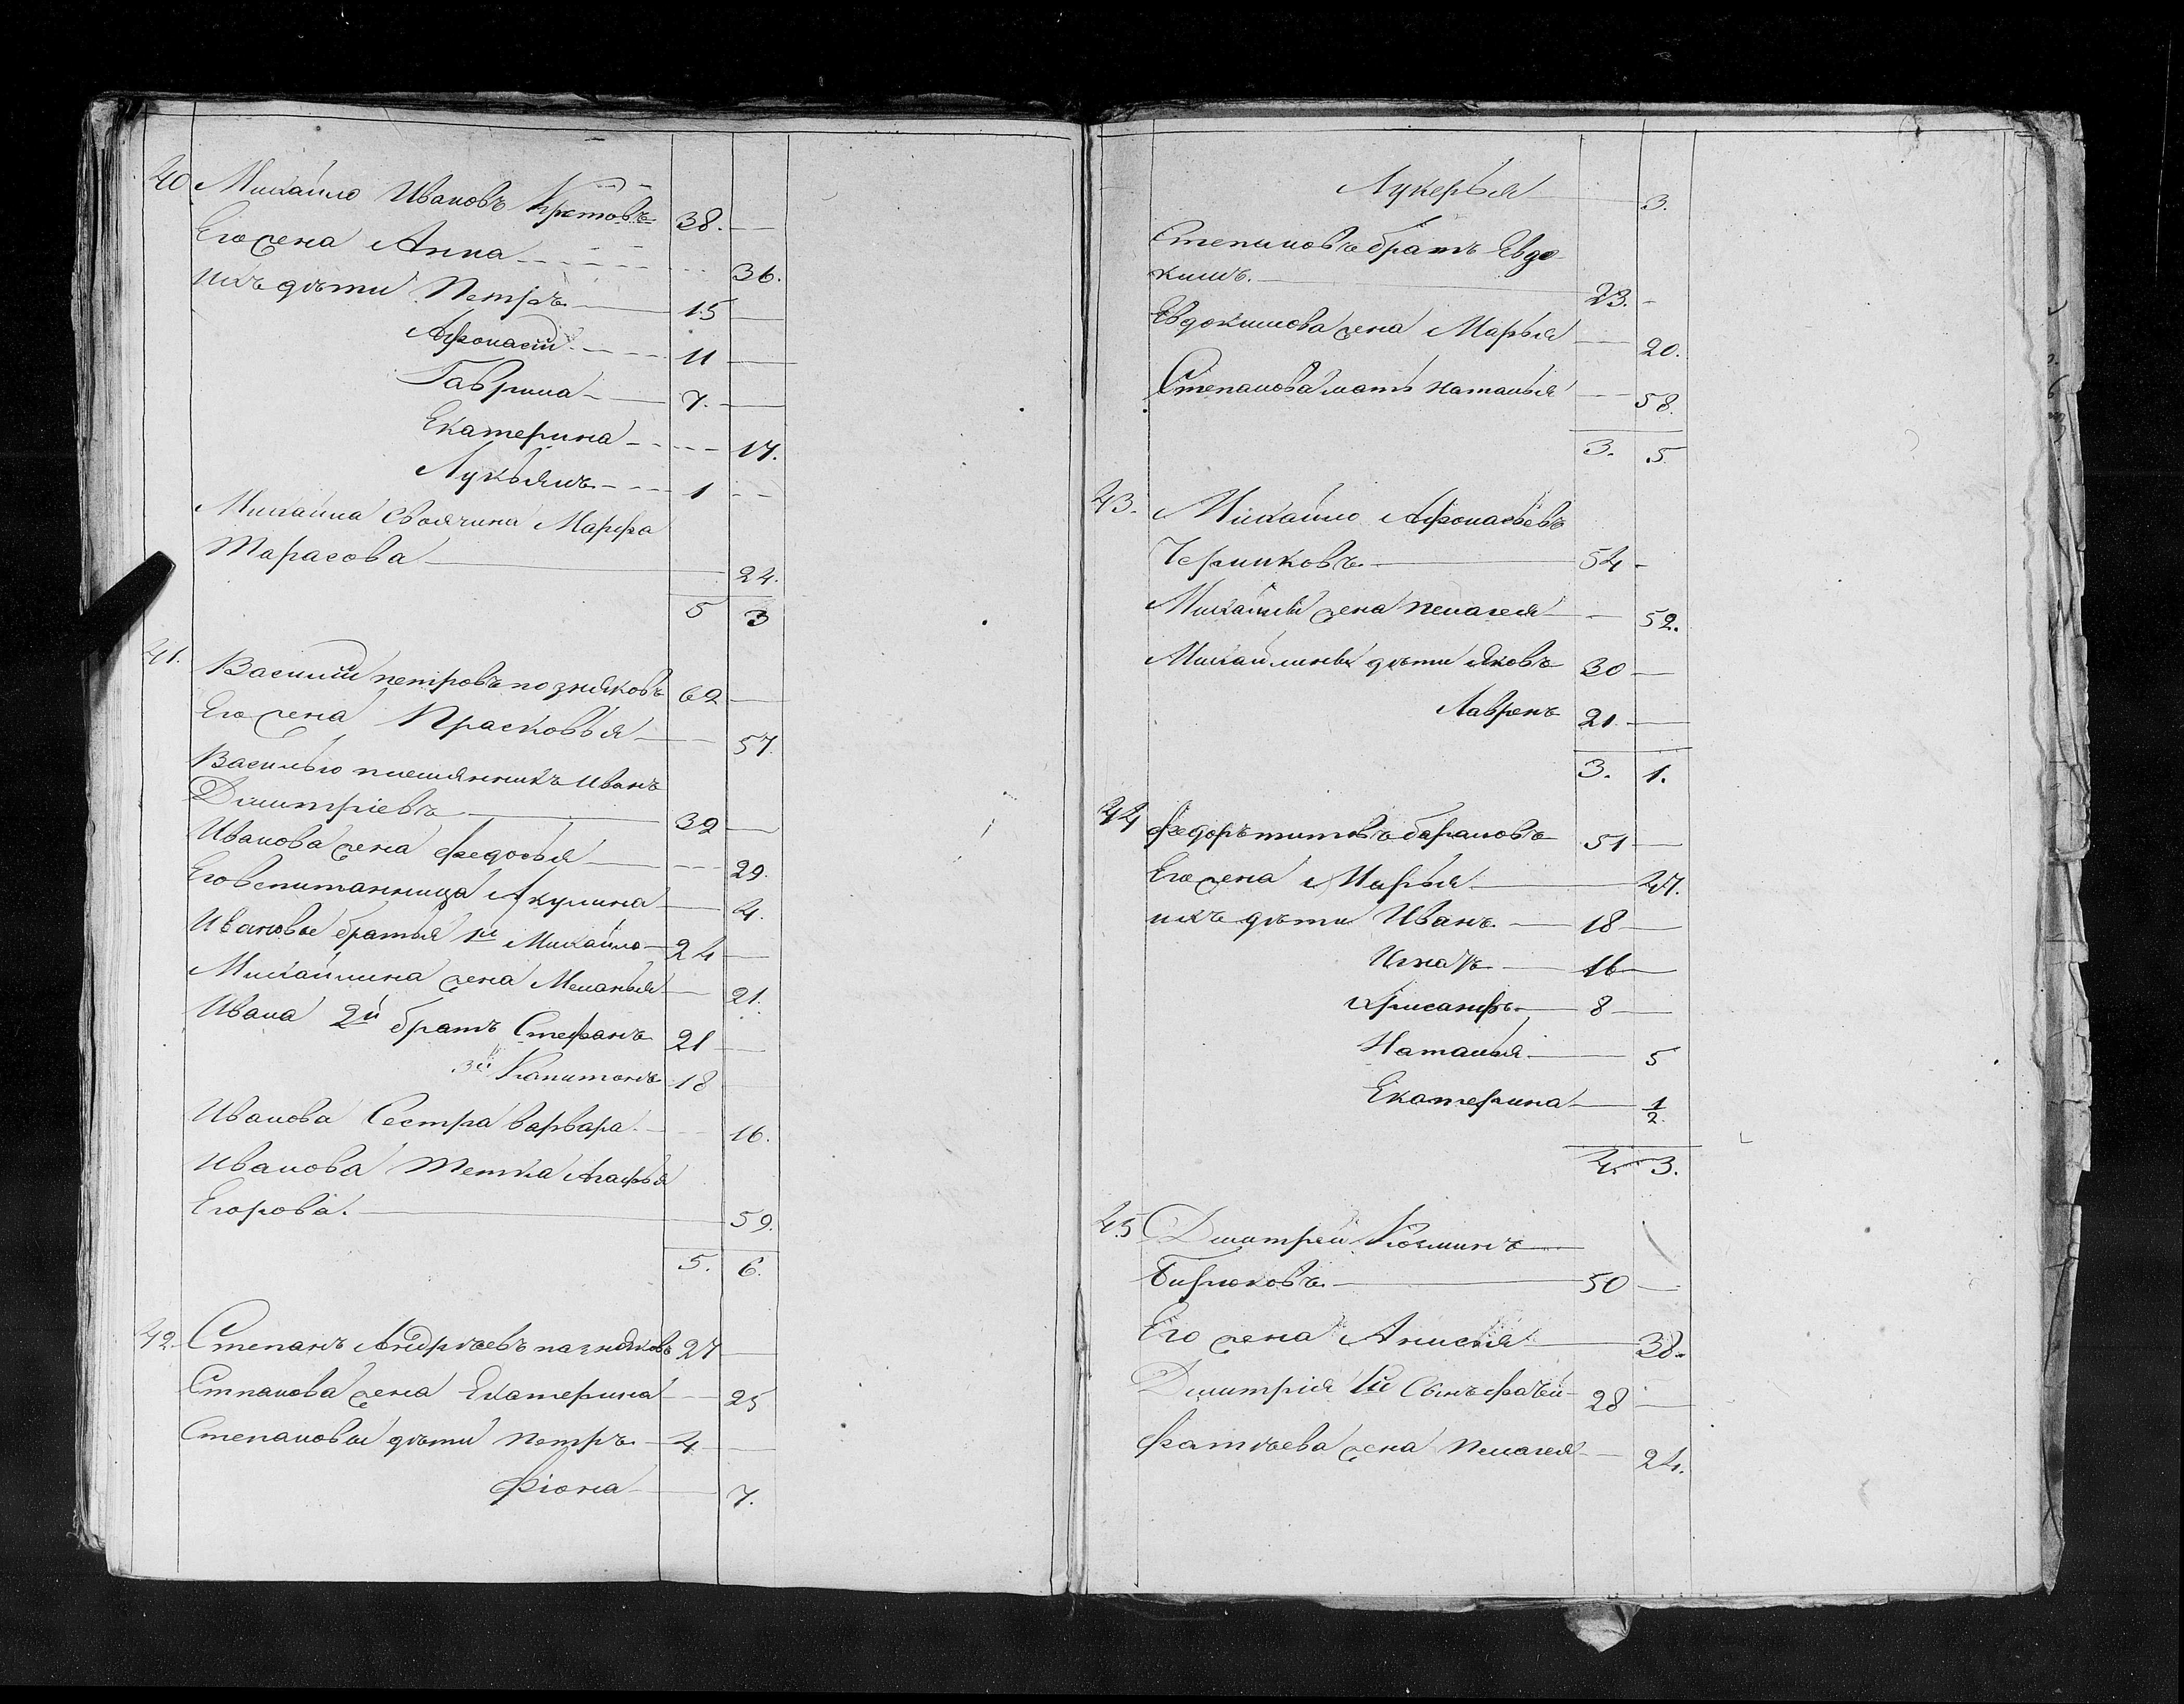 40 Михайло Ивановъ Кретовъ 38.
Его жена Анна 36.
Ихъ дѣти Петръ 15
Афонасій 11
Гаврила 7.
Екатерина 17.
Лукьянъ 1
Михайла своячина Марфа
Тарасова 24.
5 3
41. Василій петровъ позняковъ 62
Его жена Прасковья 57.
Василью племянникъ Иванъ
Дмитріевъ 32
Иванова жена Федосья 29.
Его вспитанница Акулина 4.
Ивановые братья 1й Михайло 24
Михайлина жена Меланья 21.
Ивана 2й братъ Стефанъ 21
3й Капитонъ 18
Иванова Сестра варвара 16.
Иванова Тетка Агафья
Егорова. 59.
5. 6.
42. Степанъ Андрѣевъ пазняковъ 27
Стпанова жена Екатерина 25
Степановы дѣти петръ 4
Фіона 7.
Лукерья 3.
Степановъ братъ Евдо
кимъ. 23.
Евдокимова жена Марья 20.
Степанова мать наталья 58.
3. 5.
43. Михайло Афонасьевъ
Черниковъ 54
Михайлы жена пелагея 52.
Михайлины дѣти Яковъ 30
Лавренъ 21.
3. 1.
44 Федоръ титовъ барановъ 51
Его жена Марья 47.
ихъ дѣти Иванъ 18
Игнатъ 16
Хрисанфъ 8
Наталья 5
Екатерина 1/2.
4. 3.
45 Дмитрей Козминъ
Бирюковъ 50
Его жена Анисья 38.
Дмитрія 1й Сынъ фатѣй 28
Фатѣева жена пелагея 24.